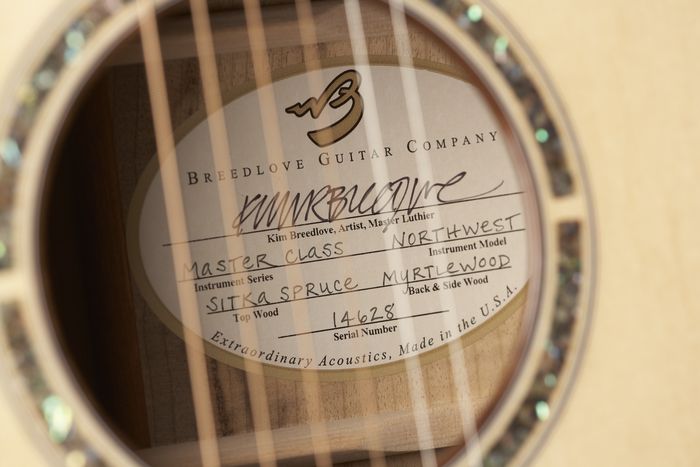 BREEDLOVE GUITAR COMPANY
Kim Breedlove
Kim Breedlove, Artist, Master Luthier
MASTER CLASS NORTHWEST
Instrument Series Instrument Model
SITKA SPRUCE MYRTLEWOOD
Top Wood Back & Side Wood
14628
Serial Number
Extraordinary Acoustics, Made in the U.S.A.